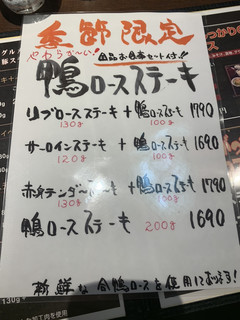 季節限定
やわらか〜い！
鴨ロースステーキ
リブロースステーキ + 鴨ロースステーキ 1790
130g 100g
サーロインステーキ + 鴨ロースステーキ 1690
120g 100g
赤身テンダーステーキ + 鴨ロースステーキ 1790
130g 100g
鴨ロースステーキ 200g 1690
新鮮な合鴨ロースを使用しております！